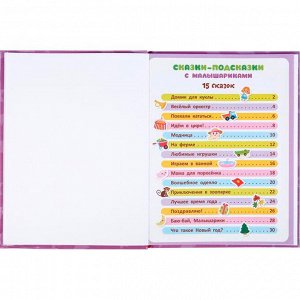 СКАЗКИ-ПОДСКАЗКИ
С МАЛЫШАРИКАМИ
15 СКАЗОК
Домик для куклы 2
Весёлый оркестр 4
Поехали кататься 6
Идём в цирк! 8
Модница 10
На ферме 12
Любимые игрушки 14
Играем в ванной 16
Мама для поросёнка 18
Волшебное одеяло 20
Приключения в зоопарке 22
Лучшее время года 24
Поздравляю! 26
Баю-бай, Малышарики 28
Что такое Новый год? 30